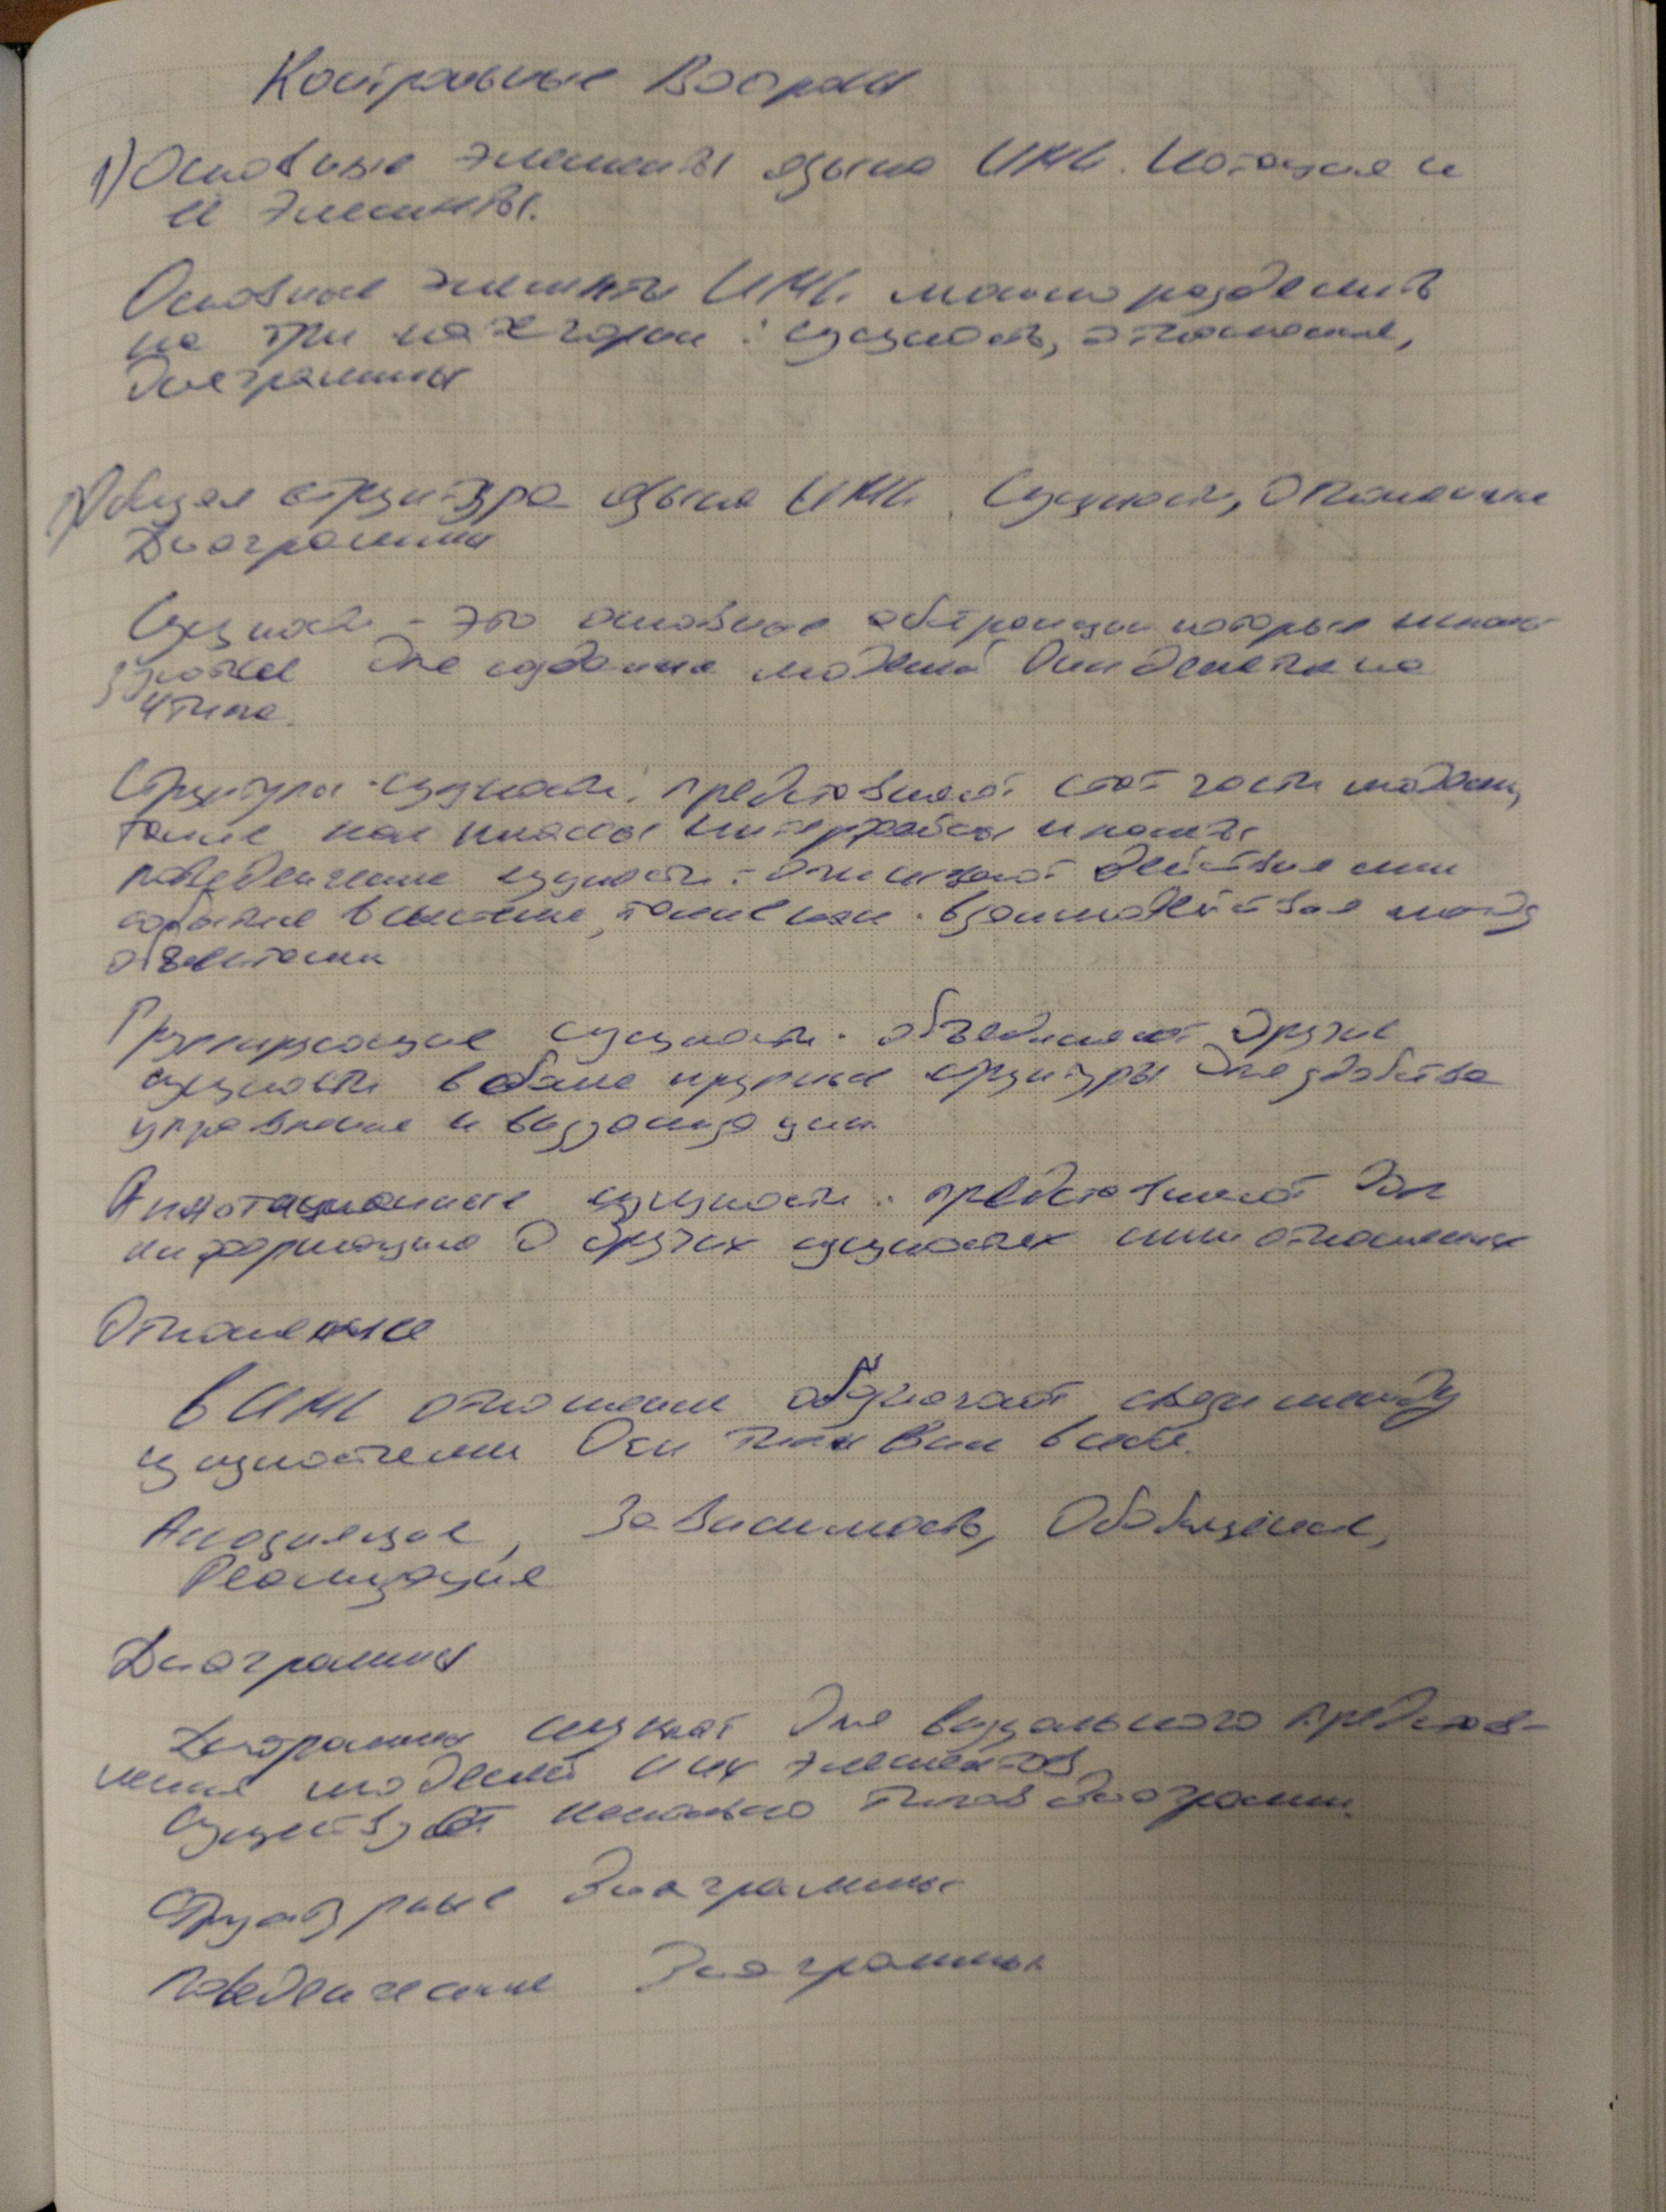 Контрольные Вопросы
1) Основные элементы языка UML. Нотация и
её элементы.
Основные элементы UML можно разделить
на три категории: сущности, отношения,
диаграммы
2) Общая структура языка UML. Сущности, Отношения
Диаграммы
Сущности - это основные абстракции которые исполь-
зуются для создания моделей Они делятся на
4 типа.
Структурн. сущности: представляют стат части модели,
такие как классы интерфейсы и
поведенческие сущности - описывают действия или
события в системе, такие как взаимодействия между
объектами
Группирующие сущности. объединяют другие
сущности в более крупные структуры для удобства
управления и визуализации.
Аннотационные сущности. представляют доп
информацию о других сущностях или отношениях
Отношение
В UML отношения обозначают связи между
сущностями Осн типы
Ассоциация, Зависимость, Обобщение,
Реализация
Диаграммы
Диаграммы служат для визуального представ-
ления моделей и их элементов
Существует несколько типов диаграмм.
Структурные Диаграммы
Поведенческие Диаграммы